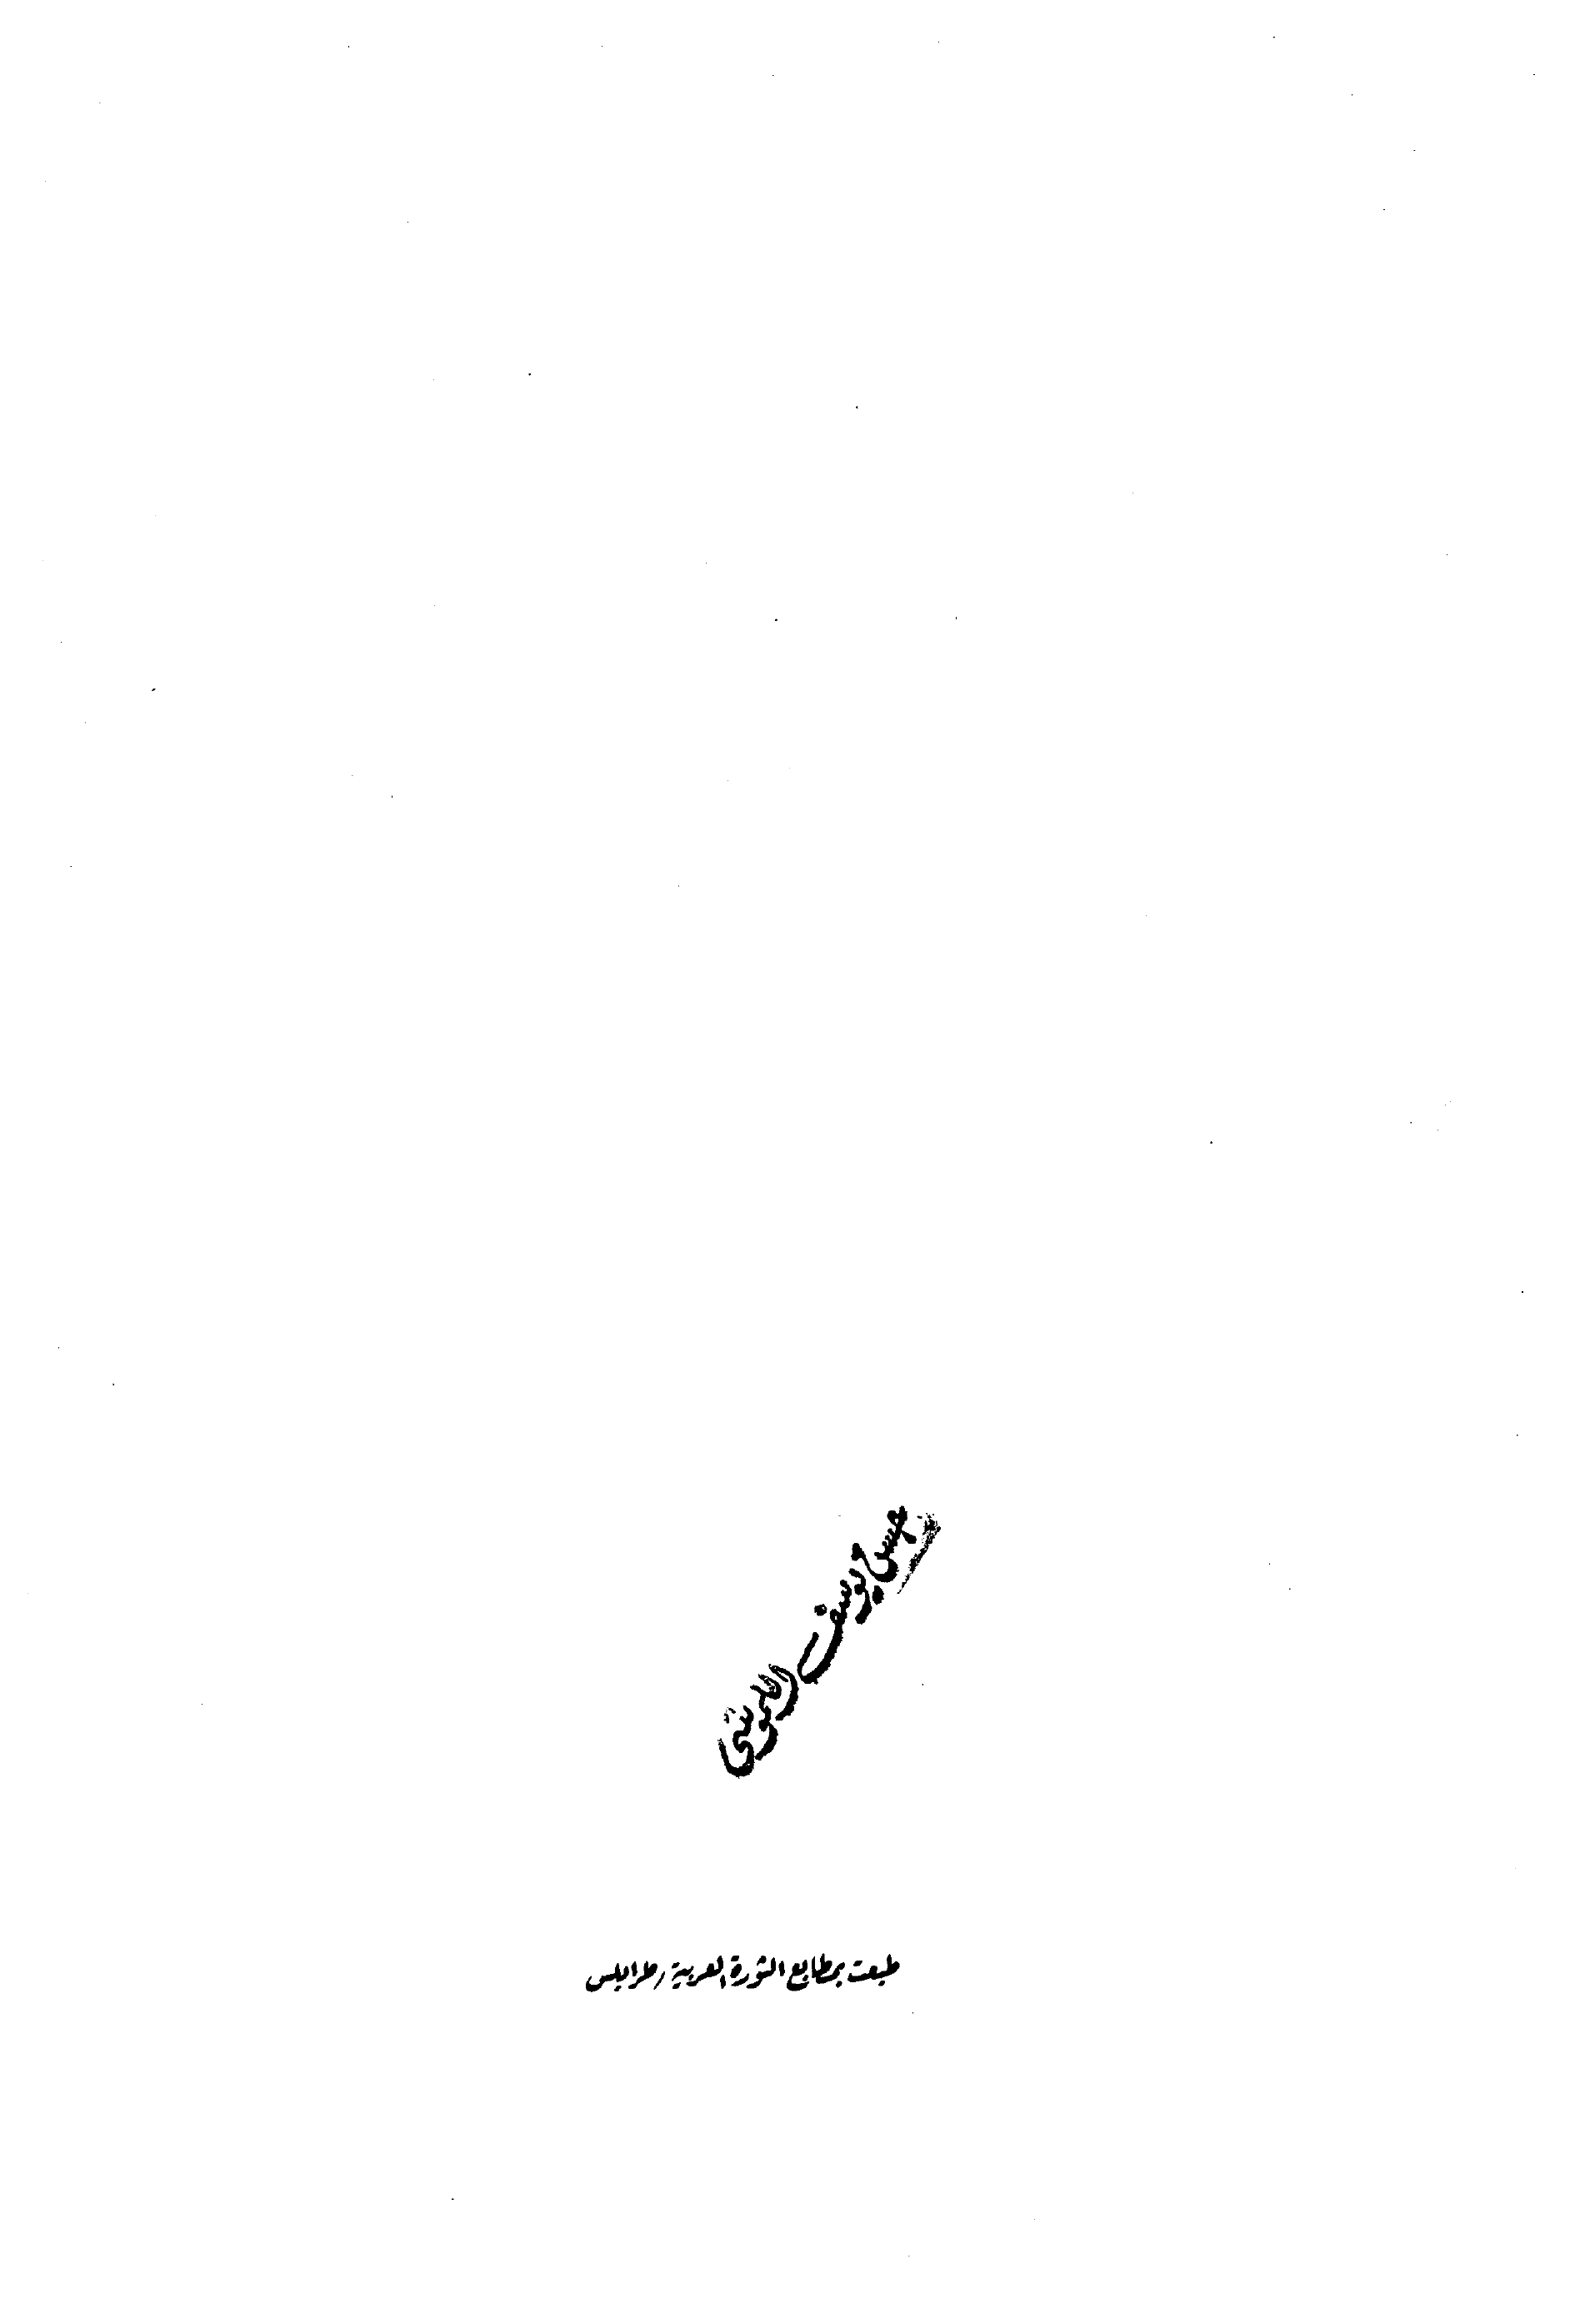 عيسى يوسف
طبعت بمطابع الثورة العربية / طرابلس